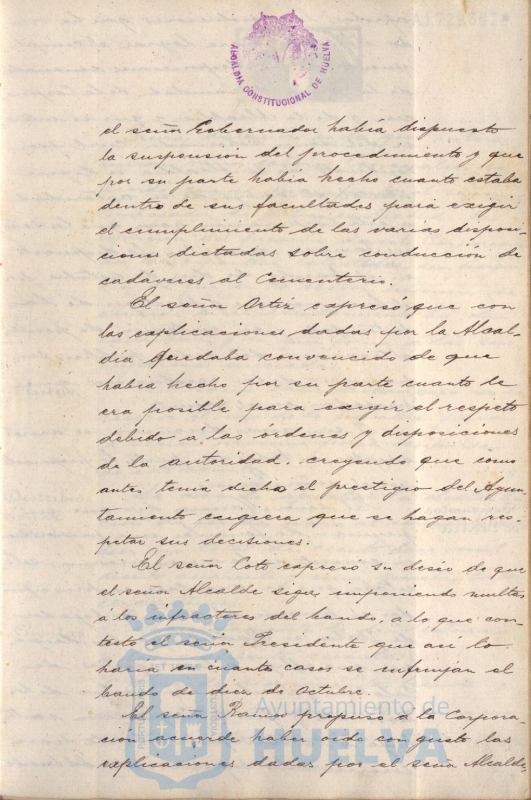 ALCALDIA CONSTITUCIONAL DE HUELVA
el señor Gobernador había dispuesto
la suspensión del procedimiento y que
por su parte había hecho cuanto estaba
dentro de sus facultades para exigir
el cumplimiento de las varias disposi-
ciones dictadas sobre conducción de
cadáveres al Cementerio.
El señor Ortiz expresó que con
las explicaciones dadas por la Alcal-
día quedaba convencido de que
había hecho por su parte cuanto le
era posible para exigir el respeto
debido á las órdenes y disposiciones
de la autoridad, creyendo que como
antes tenía dicho el prestigio del Ayun-
tamiento exigiera que se hagan res-
petar sus decisiones.
El señor Coto expresó su deseo de que
el señor Alcalde siga imponiendo multas
a los infractores del bando, a lo que con-
testó el señor Presidente que así lo
haría en cuantos casos se infrinjan el
bando de diez de Octubre.
El señor Ramos propuso a la Corpora-
ción acuerde haber oido con gusto las
explicaciones dadas por el señor Alcalde
Ayuntamiento de
HUELVA